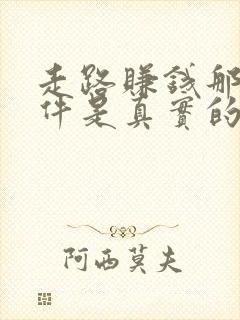 走路賺錢那
件是真實的
阿西莫夫